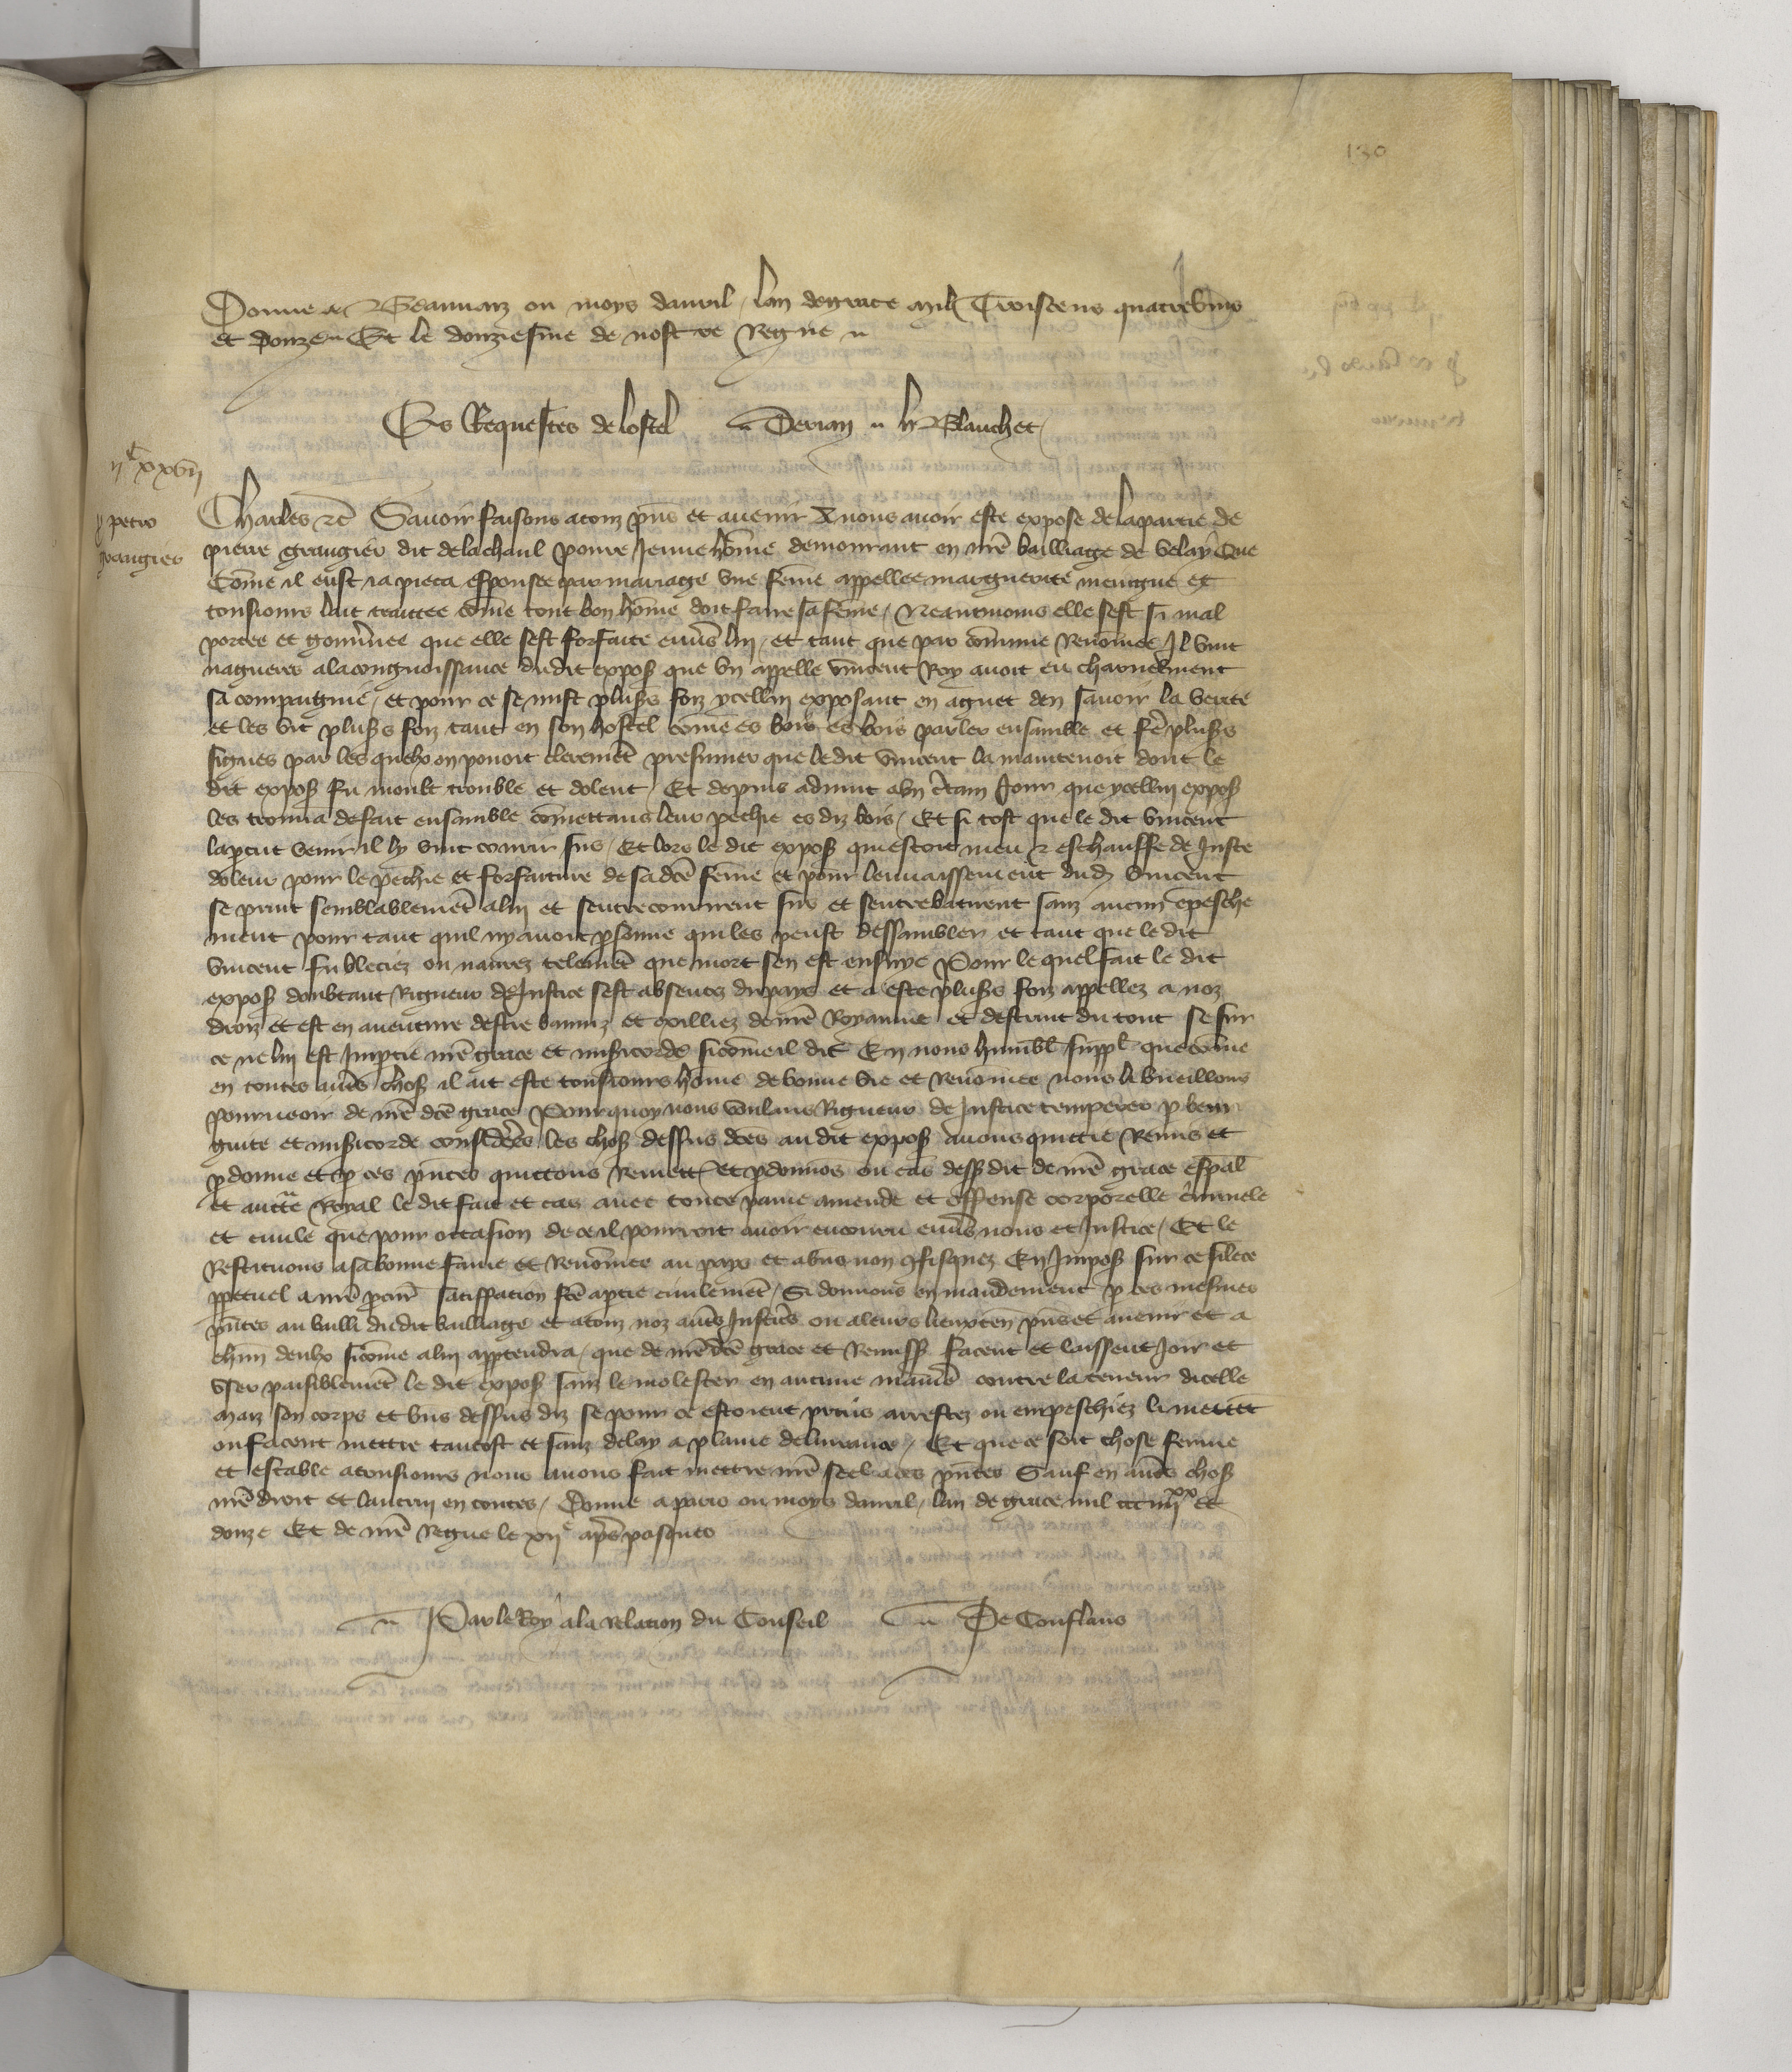 130
Donne a Beauvaiz ou moys davril lan de grace mil Troiscens quatrevins
et donze Et le douziesme de nostre Regne
Es Requestes de lostel Derian H Blanchet
IIc XXVII
p petro
grangier
Charles &c Savoir faisons a touz pns et avenir X nous avoir este expose de la partie de
pierre grangier dit de la chaul povre Jeune home demourant en nre bailliage de velay Que
Come il eust ia pieca espousee par mariage une feme appellee marguerite et
tousiours lait traittee come tout bon home doit faire sa feme Neantmoins elle sest si mal
portee et gouvnee que elle sest forfaite envs lui et tant que par comune Renomee Il vint
nagueres a la congnoissance du dit expos que un appelle vincent Roy avoit eu charnelment
sa compaignie et pour ce se mist plus foiz ycellui exposant en aguet den savoir la verite
et les vit plus foiz tant en son hostel come es bois es bois parler ensamble et fe plus
signes par les quelx on povoit cleremet presumer que le dit vincent la maintenoit dont le
dit expos fu moult trouble et dolent Et depuis advint a un ctain Jour que ycellui expos
les trouva de fait ensamble comettans leur pechie es diz bois Et si tost que le dit vincent
lapcut venir il ly vint courir sus Et lors le dit expos qui estoit meu & eschauffe de Juste
doleur pour le pechie et forfaiture de sa dce feme et pour lenvaissement dud vincent
se print semblablemet a lui et sentrecoururent sus et sentrebatirent sanz aucun epesche
ment pour tant quil ny avoit psonne qui les peust dessambler et tant que le dit
vincent fu bleciez ou navrez telemet que mort sen est ensuye Pour le quel fait le dit
expos doubtant Rigueur de Justice sest absentez du pays et a este plus foiz appellez a noz
droiz et est en aventure destre banniz et exilliez de nre Royaume et destruit du tout se sur
ce ne lui est Imptie nre grace et misicorde sicome il dit En nous humbl suppl que come
en toutes aues chos il ait este tousiours home de bonne vie et Renomee nous li vueillons
pourveoir de nre dce grace Pourquoy nous voulans Rigueur de Justice temperer p beni
gnite et misicorde consideres les chos dessus dces au dit expos avons quittie Remis et
pdonne et p ces pntes quittons Remett et pdonnos ou cas dess dit de nre grace espal
et auctte Royal le dit fait et cas avec toute paine amende et offense corporelle criminele
et civile que pour occasion de ce il pourroit avoir encouru envs nous et Justice Et le
Restituons a sa bonne fame et Renomee au pays et a bns non gfisquez En Impos sur ce silece
ppetuel a nre pcur satisfacion fce a ptie civilemet Si donnons en mandement p ces mesmes
pntes au bailli dudit bailliage et a touz noz aues Justices ou a leurs lieuxten pns et avenir et a
chun deulx sicome a lui apptendra que de nre dce grace et Remiss facent et laissent Joir et
user paisiblemet le dit expos sanz le molester en aucune maniere contre la teneur dicelle
maiz son corps et bns dessus diz se pour ce estoient prins arrestez ou empeschiez li mettet
ou facent mettre tantost et sanz delay a plaine delivrance Et que ce soit chose ferme
et estable a tousiours nous avons fait mettre nre seel a ces pntes Sauf en aues chos
nre droit et lautrui en toutes Donne a paris ou moys davril lan de grace mil ccc iiiixx et
douze Et de nre regne le xiie aps pasques
Par le Roy a la relation du Conseil De Conflans